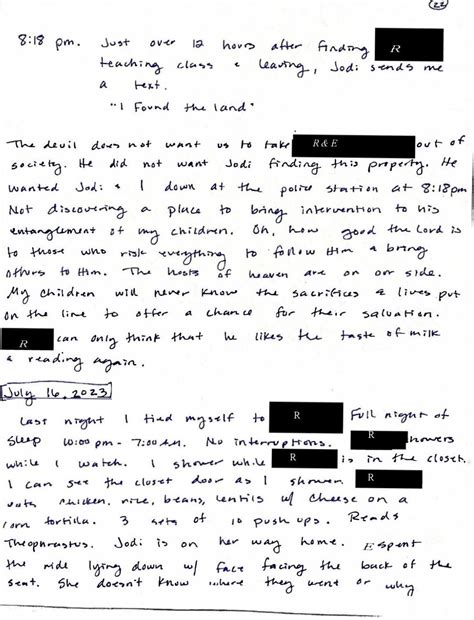 (22)
8:18 pm. Just over 12 hours after finding R
teaching class & leaving, Jodi sends me
a text.
"I Found the land"
The devil does not want us to take R & E out of
society. He did not want Jodi finding this property. He
wanted Jodi & I down at the police station at 8:18pm
Not discovering a place to bring intervention to his
entanglement of my children. Oh, how good the Lord is
to those who risk everything to follow Him & bring
others to Him. The hosts of heaven are on our side.
My children will never know the sacrifices & lives put
on the line to offer a chance for their salvation.
R can only think that he likes the taste of milk
& reading again.
July 16, 2023
Last night I tied myself to R Full night of
sleep 10:00pm - 7:00am. No interruptions. R showers
while I watch. I shower while R is in the closet.
I can see the closet door as I shower. R
eats chicken, rice, beans, lentils w/ cheese on a
corn tortilla. 3 sets of 10 push ups. Reads
Theophrastus. Jodi is on her way home. E spent
the ride lying down w/ face facing the back of the
seat. She doesn't know where they went or why